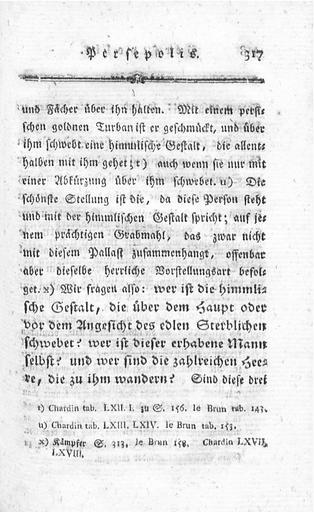 Persepolis. 317
und Fächer über ihn halten. Mit einem persi-
schen goldnen Turban ist er geschmückt, und über
ihm schwebt eine himmlische Gestalt, die allent-
halben mit ihm gehet; t) auch wenn sie nur mit
einer Abkürzung über ihm schwebet. u) Die
schönste Stellung ist die, da diese Person steht
und mit der himmlischen Gestalt spricht; auf je-
nem prächtigen Grabmahl, das zwar nicht
mit diesem Pallast zusammenhangt, offenbar
aber dieselbe herrliche Vorstellungsart befol-
get. x) Wir fragen also: wer ist die himmli-
sche Gestalt, die über dem Haupt oder
vor dem Angesicht des edlen Sterblichen
schwebet? wer ist dieser erhabene Mann
selbst? und wer sind die zahlreichen Hee-
re, die zu ihm wandern? Sind diese drei
t) Chardin tab. LXII. I. zu S. 156. le Brun tab. 143.
u) Chardin tab. LXIII. LXIV. le Brun tab. 153.
x) Kämpfer S. 313, le Brun 158. Chardin LXVII,
LXVIII.